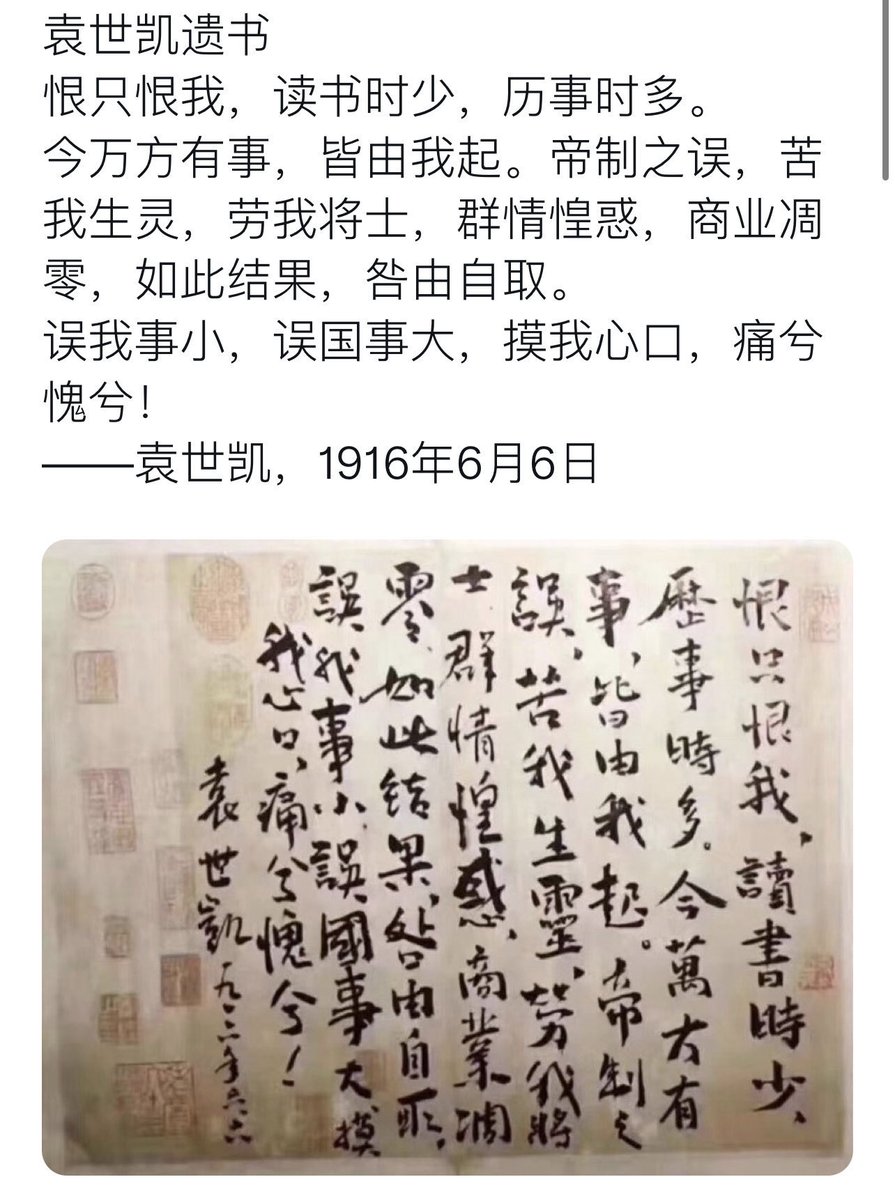 袁世凯遗书
恨只恨我，读书时少，历事时多。
今万方有事，皆由我起。帝制之误，苦
我生灵，劳我将士，群情惶惑，商业凋
零，如此结果，咎由自取。
误我事小，误国事大，摸我心口，痛兮
愧兮！
——袁世凯，1916年6月6日
恨只恨我，讀書時少、
歷事時多。今萬方有
事、皆由我起。帝制之
誤、苦我生靈、勞我將
士 群情惶惑、商業凋
零、如此结果、咎由自取、
誤我事小、誤國事大 摸
我心口、痛兮愧兮！
袁世凱 一九一六年六六